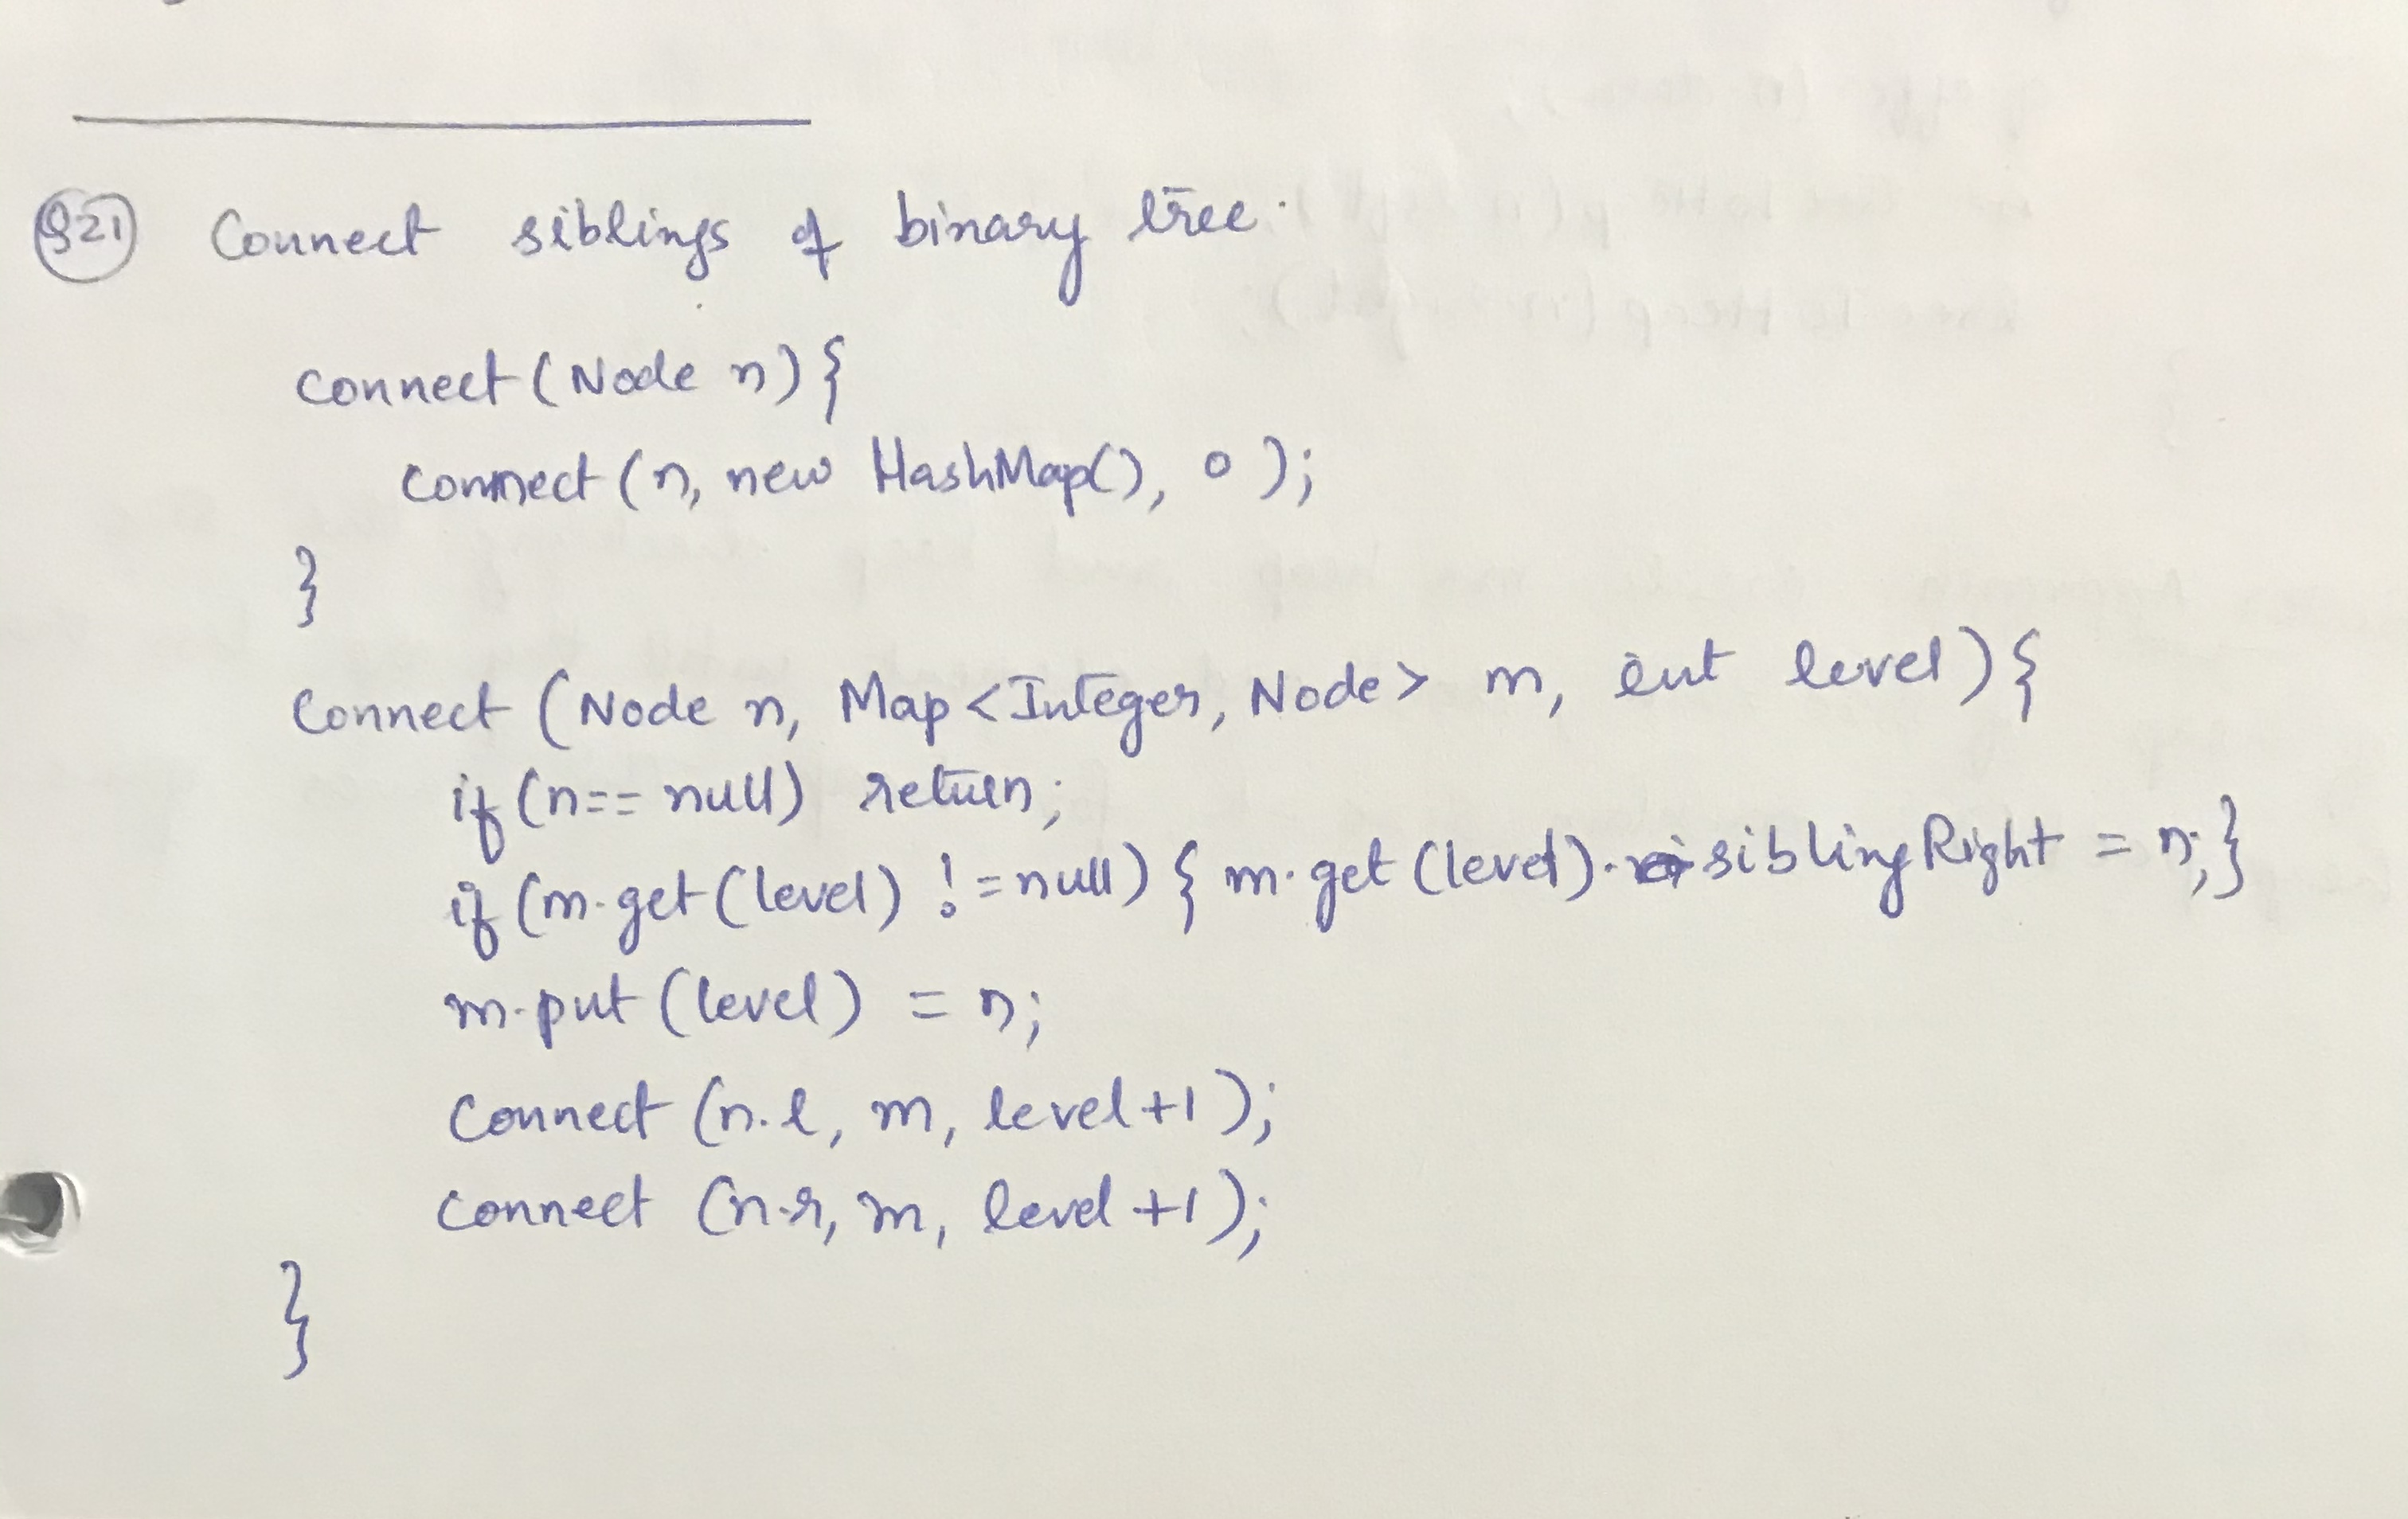 S21 Connect siblings of binary tree.
connect (Node n) {
connect (n, new HashMap(), 0 );
}
connect (Node n, Map <Integer, Node> m, int level) {
if (n == null) return;
if (m.get (level) != null) { m.get (level). siblingRight = n; }
m.put (level) = n;
connect (n.l, m, level +1 );
connect (n.r, m, level +1 );
}